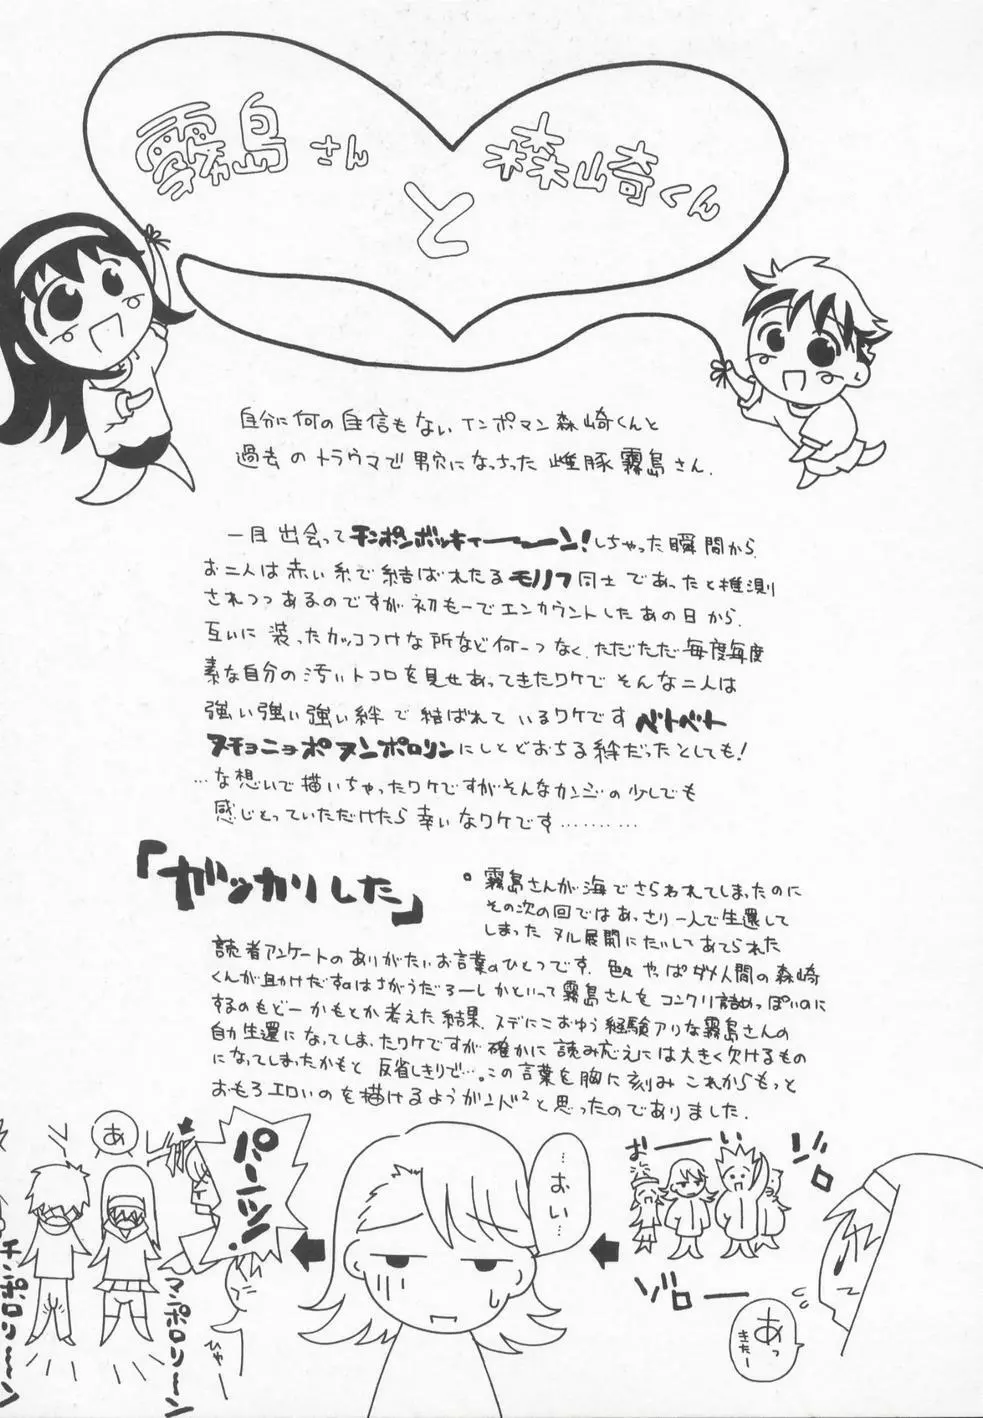 霧島さん
と
森崎くん
自分に何の自信もないインポマン森崎くんと
過去のトラウマで男穴になっちった雌豚霧島さん.
一目出会ってチンポンボッキィーーーン!しちゃった瞬間から.
お二人は赤い糸で結ばれたるモノノフ同士であったと推測
されつつあるのですが初も一でエンカウントしたあの日から.
互いに装ったカッコつけな所など何一つなく.ただただ毎度毎度
素な自分の汚いトコロを見せあってきたワケでそんな二人は
強い強い強い絆で結ばれているワケですベトベト
ヌチョニョポヌンポロリンにしとどおちる絆だったとしても!
…な想いで描いちゃったワケですがそんなカンジの少しでも
感じとっていただけたら幸いなワケです………
「ガッカリした」
。霧島さんが海でさらわれてしまったのに
その次の回ではあっさり一人で生還して
しまったヌル展開にたいしてあてられた
読者アンケートのありがたいお言葉のひとつです.色々やっぱダメ人間の森崎
くんが助けだすのはさがうだろーしかといって霧島さんをコンクリ詰めっぽいのに
するのもどーかもとか考えた結果.スデにこおゆう経験アリな霧島さんの
自力生還になってしまったワケですが確かに読み応えには大きく欠けるもの
になってしまったかもと反省しきりで…。この言葉を胸に刻みこれからもっと
おもろエロいのを描けるようガンバ²と思ったのでありました.
おーーい
ゾロ
ゾロー
あっ
きたー
…おい…
パーーンッ!
ひゃー
あ
マンポロリ〜ン
チンポロリ〜ン